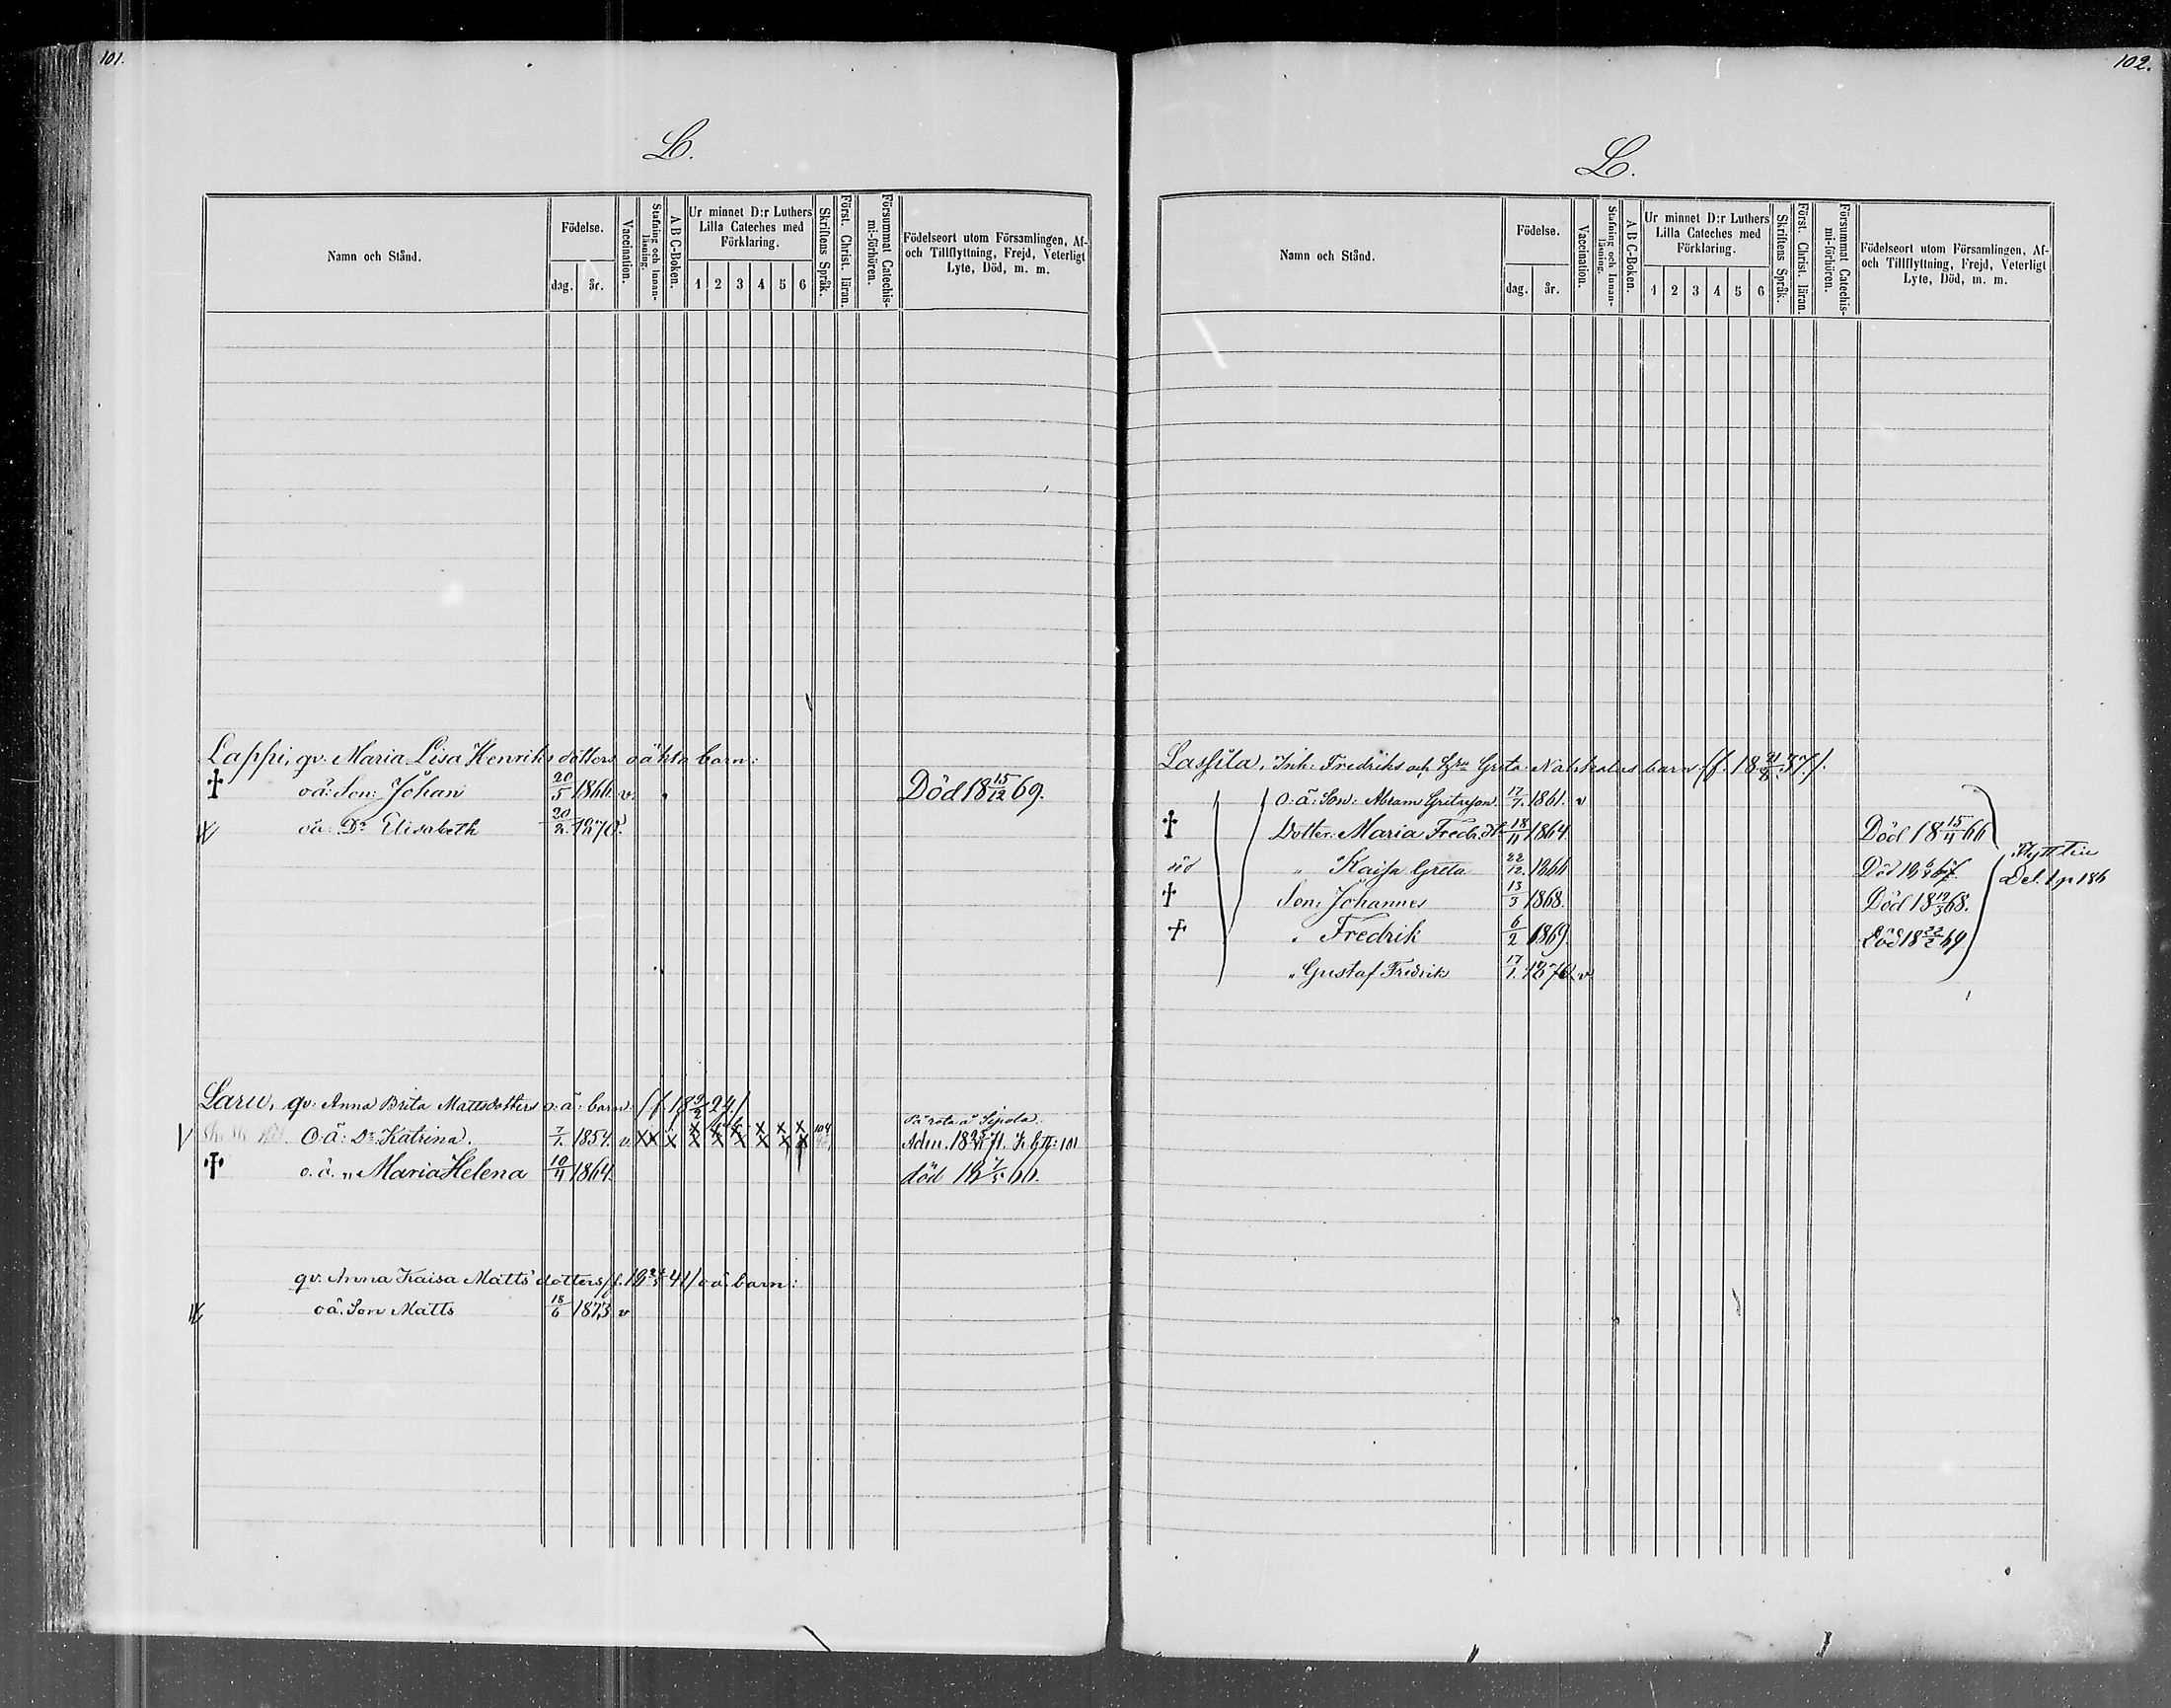 101.
L.
Namn och Stånd.
Födelse.
dag.
år.
Vaccination.
Stafning och Innan-läsning.
A B C-Boken.
Ur minnet D:r Luthers
Lilla Cateches med
Förklaring.
1 2 3 4 5 6
Skriftens Språk.
Först. Christ. läran.
Försummat Catechis-mi-förhören.
Födelseort utom Församlingen, Af-
och Tillflyttning, Frejd, Veterligt
Lyte, Död, m. m.
Lappi, qv. Maria Lisa Henriksdotters oäkta barn:
oä: Son: Johan 20/5 1866. v. Död 18 15/12 69.
oä: Dr Elisabeth 20/2. 1870.
Laru, qv: Anna Brita Mattsdotters o: ä: barn: (f. 18 9/2 24.)
På rota å Sipola.
O: ä: Dr Katrina. 7/1. 1854. v. X X X X X X X X X 104
o. ä. " Maria Helena 10/4 1864. död 18 7/5 66.
qv. Anna Kaisa Matts dotters (f. 18 24/5 41) oä. barn:
oä. Son Matts 18/6 1873 v
102.
L.
Namn och Stånd.
Födelse.
dag.
år.
Vaccination.
Stafning och Innan-läsning.
A B C-Boken.
Ur minnet D:r Luthers
Lilla Cateches med
Förklaring.
1 2 3 4 5 6
Skriftens Språk.
Först. Christ. läran.
Försummat Catechis-mi-förhören.
Födelseort utom Församlingen, Af-
och Tillflyttning, Frejd, Veterligt
Lyte, Död, m. m.
Lassila, Inh: Fredriks och Greta barn (f. 18 21/8 37.).
O: ä: Son: Abram 17/7. 1861. v
Dotter: Maria Fredr. dt 18/11 1864. Död 18 15/4 66
död " Kaisa Greta 22/12. 1866 Död
Son: Johannes 13/3 1868. Död 18 19/3 68.
" Fredrik 6/2 1869. Död 18 22/2 69
" Gustaf Fredrik 17/1. 1870 v
Flytt till
Del. 1 p 186